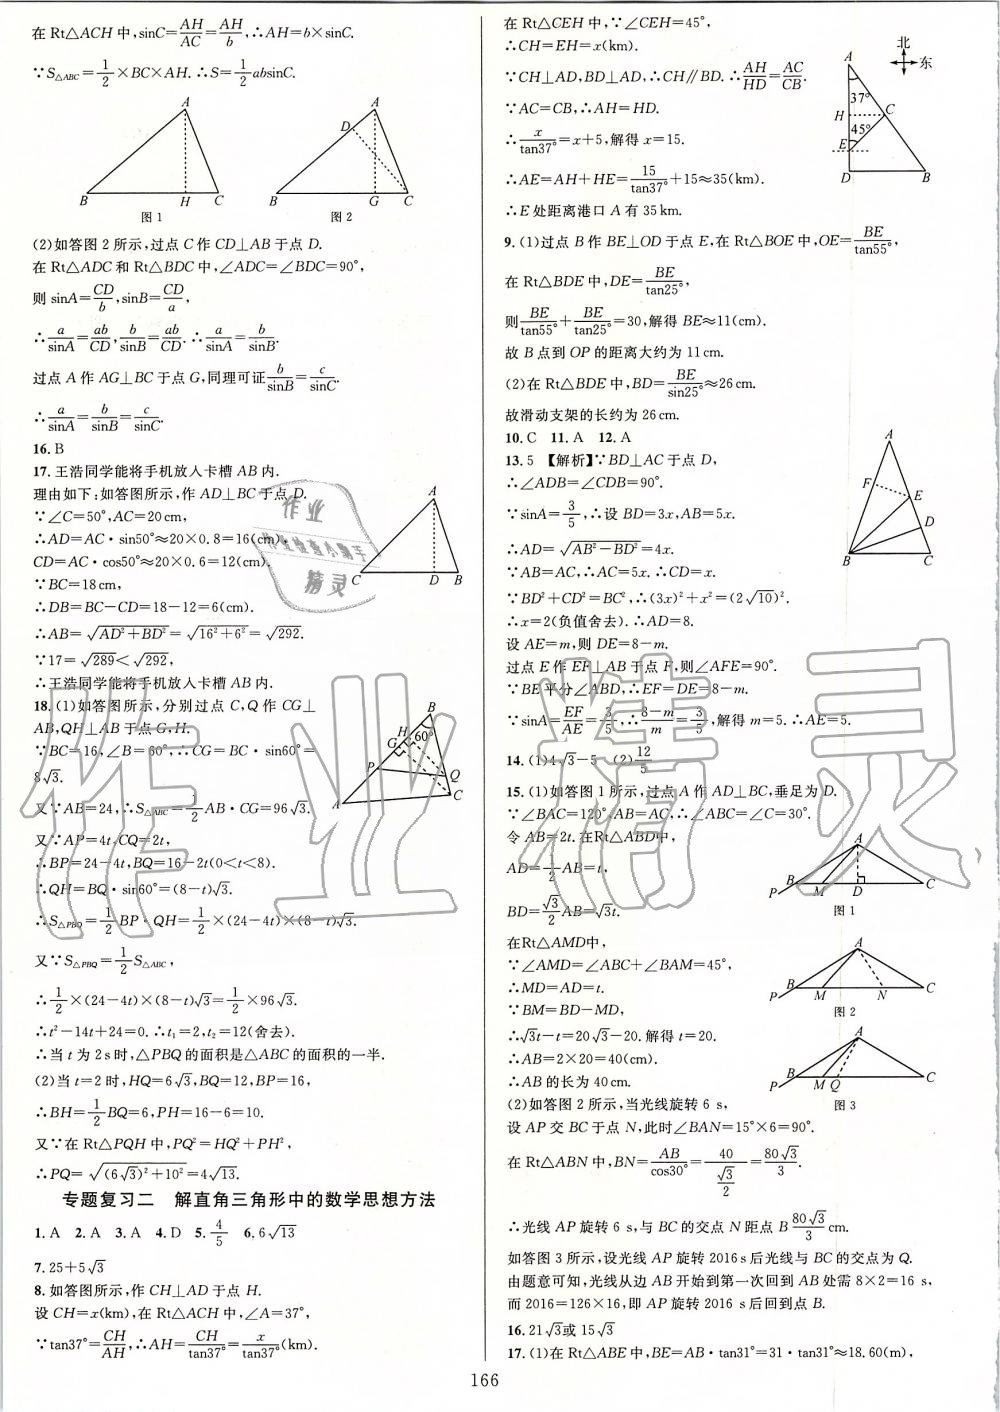 在Rt△ACH中,sinC=AH/AC=AH/b,∴AH=b×sinC.
∵S△ABC=1/2×BC×AH.∴S=1/2absinC.
A
B H C
图1
A
D
B G C
图2
(2)如答图2所示,过点C作CD⊥AB于点D.
在Rt△ADC和Rt△BDC中,∠ADC=∠BDC=90°,
则sinA=CD/b,sinB=CD/a,
∴a/sinA=ab/CD,b/sinB=ab/CD.∴a/sinA=b/sinB.
过点A作AG⊥BC于点G,同理可证b/sinB=c/sinC.
∴a/sinA=b/sinB=c/sinC.
16.B
17.王浩同学能将手机放入卡槽AB内.
理由如下:如答图所示,作AD⊥BC于点D.
∵∠C=50°,AC=20cm,
∴AD=AC·sin50°≈20×0.8=16(cm),
CD=AC·cos50°≈20×0.6=12(cm).
∵BC=18cm,
∴DB=BC-CD=18-12=6(cm).
∴AB=√(AD²+BD²)=√(16²+6²)=√292.
∵17=√289<√292,
∴王浩同学能将手机放入卡槽AB内.
A
C D B
18.(1)如答图所示,分别过点C,Q作CG⊥
AB,QH⊥AB于点G,H.
∵BC=16,∠B=60°,∴CG=BC·sin60°=
8√3.
又∵AB=24,∴S△ABC=1/2AB·CG=96√3.
又∵AP=4t,CQ=2t,
∴BP=24-4t,BQ=16-2t(0<t<8).
∴QH=BQ·sin60°=(8-t)√3.
∴S△PBQ=1/2BP·QH=1/2×(24-4t)×(8-t)√3.
又∵S△PBQ=1/2S△ABC,
∴1/2×(24-4t)×(8-t)√3=1/2×96√3.
∴t²-14t+24=0.∴t₁=2,t₂=12(舍去).
∴当t为2s时,△PBQ的面积是△ABC的面积的一半.
(2)当t=2时,HQ=6√3,BQ=12,BP=16,
∴BH=1/2BQ=6,PH=16-6=10.
又∵在Rt△PQH中,PQ²=HQ²+PH²,
∴PQ=√((6√3)²+10²)=4√13.
B
H
60°
G
P
Q
A C
专题复习二 解直角三角形中的数学思想方法
1.A 2.A 3.A 4.D 5.4/5 6.6√13
7.25+5√3
8.如答图所示,作CH⊥AD于点H.
设CH=x(km),在Rt△ACH中,∠A=37°,
∵tan37°=CH/AH,∴AH=CH/tan37°=x/tan37°(km).
在Rt△CEH中,∵∠CEH=45°,
∴CH=EH=x(km).
∵CH⊥AD,BD⊥AD,∴CH∥BD.∴AH/HD=AC/CB.
∵AC=CB,∴AH=HD.
∴x/tan37°=x+5,解得x=15.
∴AE=AH+HE=15/tan37°+15≈35(km).
∴E处距离港口A有35km.
北
东
A
37°
H C
45°
E
D B
9.(1)过点B作BE⊥OD于点E,在Rt△BOE中,OE=BE/tan55°,
在Rt△BDE中,DE=BE/tan25°,
则BE/tan55°+BE/tan25°=30,解得BE≈11(cm).
故B点到OP的距离大约为11cm.
(2)在Rt△BDE中,BD=BE/sin25°≈26cm.
故滑动支架的长约为26cm.
10.C 11.A 12.A
13.5 【解析】∵BD⊥AC于点D,
∴∠ADB=∠CDB=90°.
∵sinA=3/5,∴设BD=3x,AB=5x.
∴AD=√(AB²-BD²)=4x.
∵AB=AC,∴AC=5x.∴CD=x.
∵BD²+CD²=BC²,∴(3x)²+x²=(2√10)².
∴x=2(负值舍去).∴AD=8.
设AE=m,则DE=8-m.
过点E作EF⊥AB于点F,则∠AFE=90°.
∵BE平分∠ABD,∴EF=DE=8-m.
∵sinA=EF/AE=3/5,∴(8-m)/m=3/5,解得m=5.∴AE=5.
A
F E
D
B C
14.(1)4√3-5 (2)12/5
15.(1)如答图1所示,过点A作AD⊥BC,垂足为D.
∵∠BAC=120°,AB=AC,∴∠ABC=∠C=30°.
令AB=2t.在Rt△ABD中,
AD=1/2AB=t,
BD=√3/2AB=√3t.
在Rt△AMD中,
∵∠AMD=∠ABC+∠BAM=45°,
∴MD=AD=t.
∵BM=BD-MD,
∴√3t-t=20√3-20.解得t=20.
∴AB=2×20=40(cm).
∴AB的长为40cm.
A
B
P M D C
图1
A
B
P M N C
图2
A
B
P M Q C
图3
(2)如答图2所示,当光线旋转6 s,
设AP交BC于点N,此时∠BAN=15°×6=90°.
在Rt△ABN中,BN=AB/cos30°=40/(√3/2)=80√3/3.
∴光线AP旋转6 s,与BC的交点N距点B 80√3/3cm.
如答图3所示,设光线AP旋转2016 s后光线与BC的交点为Q.
由题意可知,光线从边AB开始到第一次回到AB处需8×2=16 s,
而2016=126×16,即AP旋转2016 s后回到点B.
16.21√3或15√3
17.(1)在Rt△ABE中,BE=AB·tan31°=31·tan31°≈18.60(m),
166
作业精灵
作业
作业检查小助手
精灵